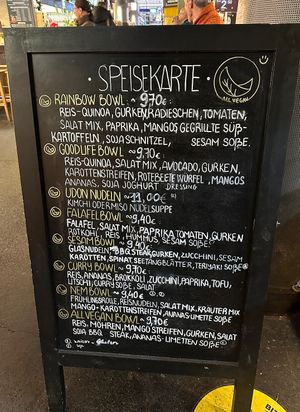 ALL VEGAN
· SPEISEKARTE ·
RAINBOW BOWL ~ 9,70€ :
REIS-QUINOA, GURKEN, RADIESCHEN, TOMATEN,
SALAT MIX, PAPRIKA, MANGOS, GEGRILLTE SÜß-
KARTOFFELN, SOJA SCHNITZEL, SESAM SOßE.
GOODLIFE BOWL ~ 9.70€
REIS-QUINOA, SALAT MIX, AVOCADO, GURKEN,
KAROTTENSTREIFEN, ROTEBEETE WÜRFEL, MANGOS
ANANAS, SOJA JOGHURT DRESSING
UDON NUDELN ~ 11,00€
KIMCHI ODER MISO NUDELSUPPE
FALAFEL BOWL ~ 9,40€
FALAFEL, SALAT MIX, PAPRIKA, TOMATEN, GURKEN
ROTKOHL, REIS, HUMMUS, SESAM SOßE
SESAM BOWL ~ 9,40€
GLASNUDELN, BBQ STEAK, GURKEN, ZUCCHINI, SESAM
KAROTTEN, SPINAT, SEETANGBLÄTTER, TERIYAKI SOßE
CURRY BOWL ~ 9,70€
REIS, ANANAS, BROKKOLI, ZUCCHINI, PAPRIKA, TOFU,
LITSCHI, CURRY SOßE, SALAT
NEM BOWL ~ 9,40€
FRÜHLINGSROLLE, REISNUDELN, SALAT MIX, KRÄUTER MIX
MANGO-KAROTTENSTREIFEN, ANANAS-LIMETTE SOßE
ALLVEGAN BOWL ~ 9,70€
REIS, MÖHREN, MANGO STREIFEN, GURKEN, SALAT
SOJA BBQ STEAK, ANANAS-LIMETTEN SOßE
BITTE